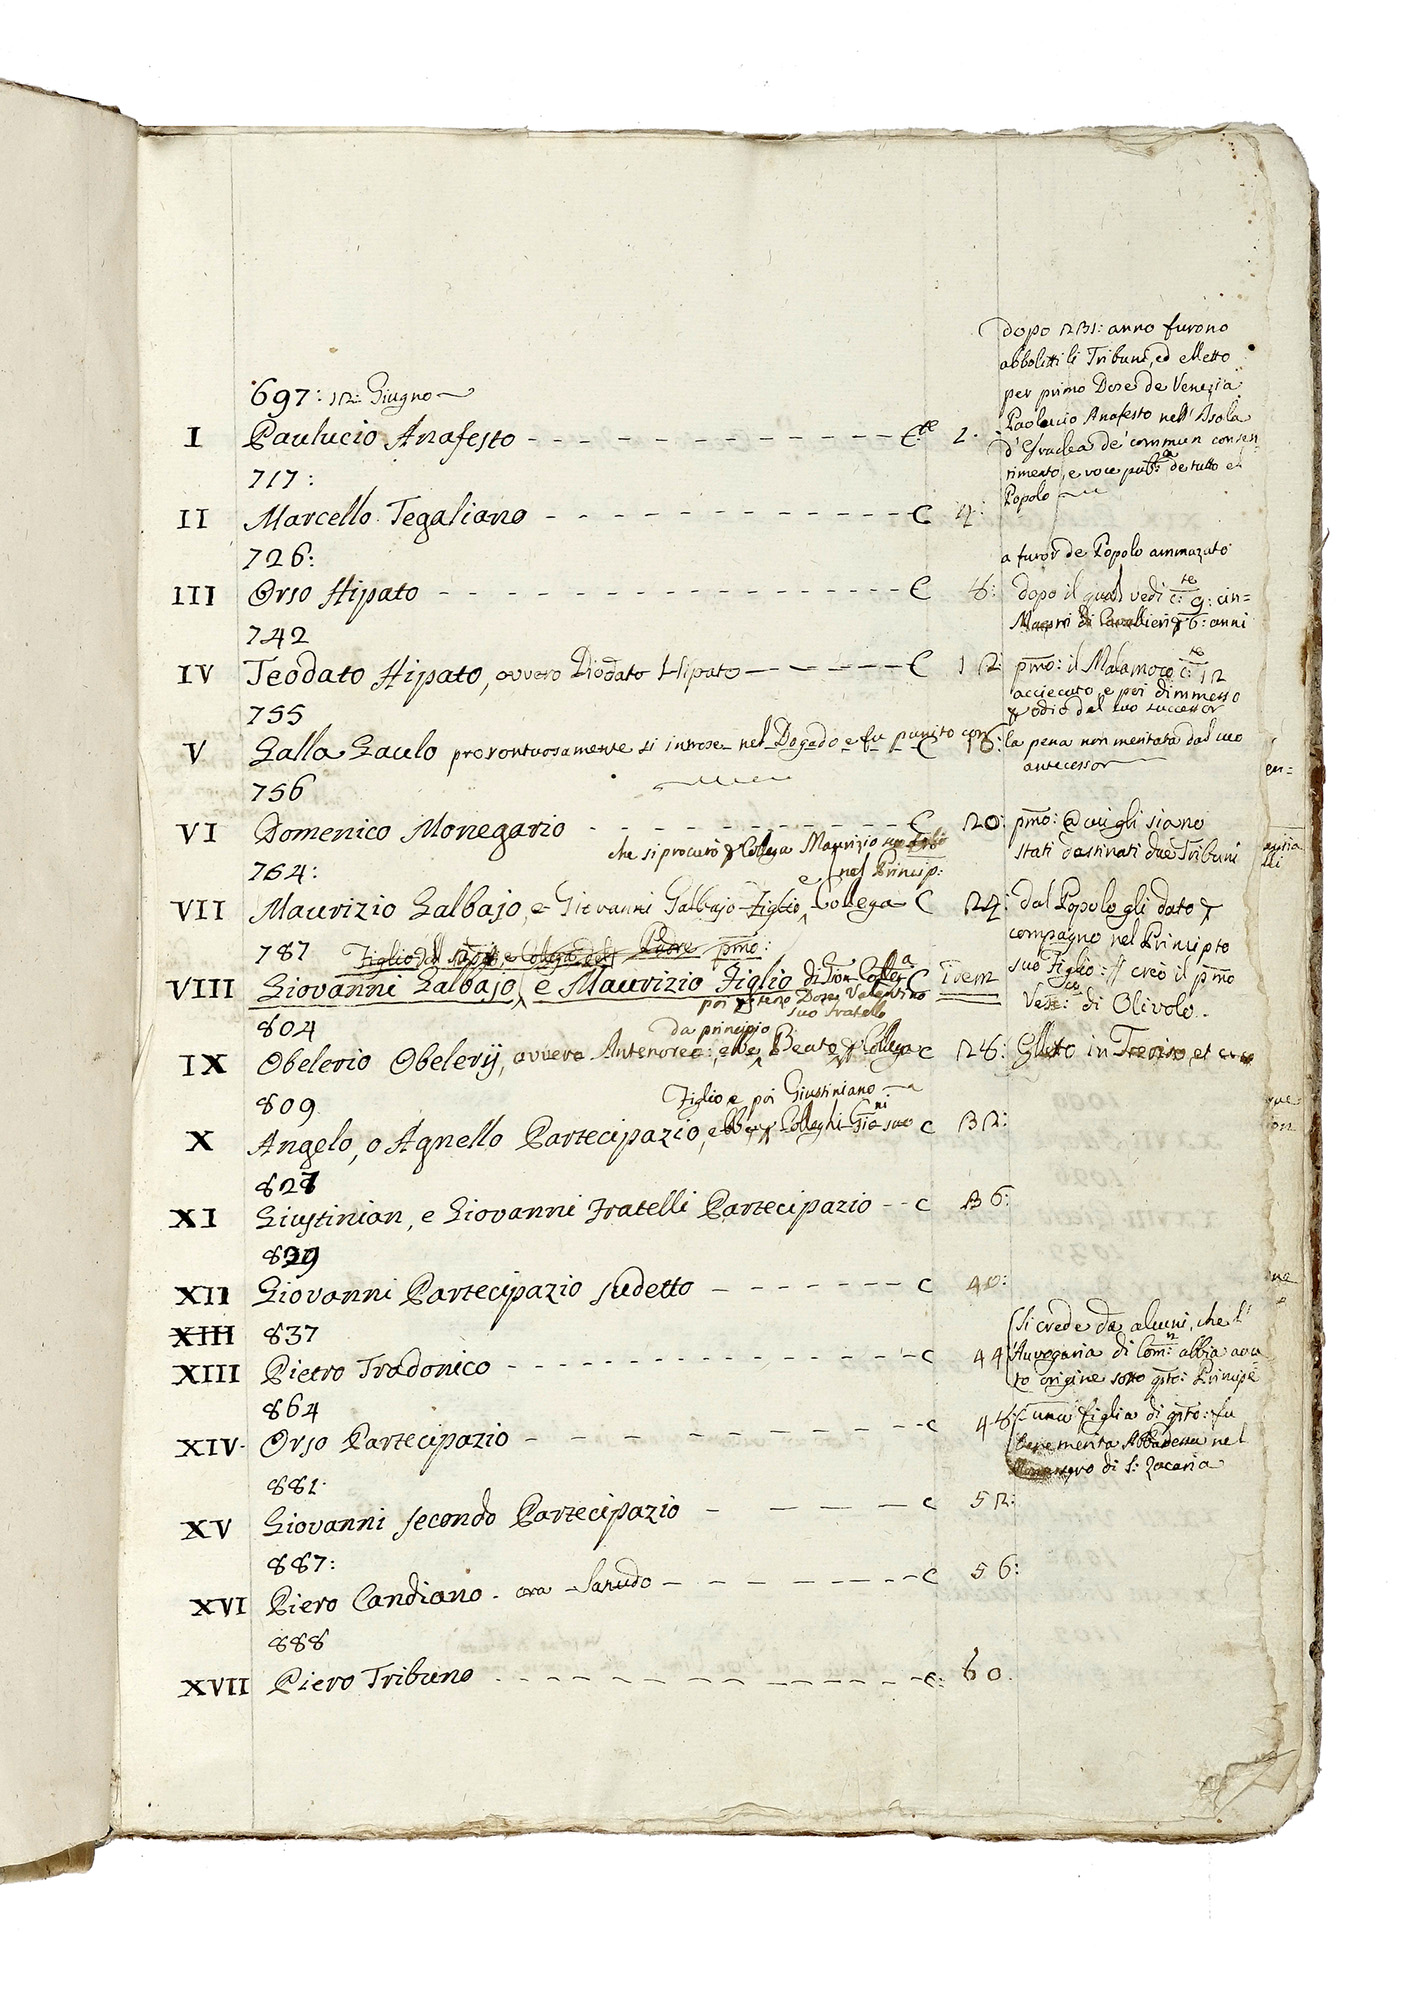 697: 12: Giugno
I Paulucio Anafesto C.te 2.
dopo 231: anno furono
abbolitti li Tribuni, ed eletto
per primo Dose de Venezia
Paolucio Anafesto nell' Isola
d' Eraclea de' commun consen
timento, e voce pub:a de tutto el
Popolo
717:
II Marcello Tegaliano C 4:
726:
a furor de Popolo ammazato
III Orso Hipato C 8:
dopo il qual vedi c:te 9: cin=
Maestri di Cavallieri 6: anni
742
IV Teodato Hipato, ovvero Diodato Hipato C 12
pmo: il Malamoco c:te 12
acciecato, e poi dimmesso
odio dal suo successor
755
V Galla Gaulo prosontuosamente si introse nel Dogado e fu punito con C 18:
la pena non meritata dal suo
antecessor
756
VI Domenico Monegario C 20:
pmo: a cui gli siano
stati destinati due Tribuni
che si procurò Collega Maurizio suo
nel Princip:
764:
VII Maurizio Galbajo, e Giovanni Galbajo Figlio, e Collega C 24:
dal Popolo gli dato
compagno nel Principto
suo Figlio: // creò il pmo
Ves:co di Olivolo.
787 Figlio del e Collega del Padre pmo:
VIII Giovanni Galbajo, e Maurizio Figlio di Gio: Collega C Idem
poi Dose, Valentino
suo fratello
804
da principio
IX Obelerio Obelerij, ovvero Antenoreo: ebbe Beato Collega C 28:
Eletto in Treviso, et
809
Figlio e poi Giustiniano
X Angelo, o Agnello Partecipazio, ebbe Colleghi Gio:ni suo C 32:
827
XI Giustinian, e Giovanni Fratelli Partecipazio C 36:
829
XII Giovanni Partecipazio sudetto C 40:
XIII 837
XIII Pietro Tradonico C 44
Si crede da alcuni, che l'
Auvogaria di Com:n abbia avu
to origine sotto qsto: Principe
864
XIV. Orso Partecipazio C 48:
una figlia di qsto: fu
benemerita Abbadessa nel
Monastero di S: Zacaria
881.
XV Giovanni secondo Partecipazio C 52:
887:
XVI Piero Candiano. ora Sanudo C 56:
888
XVII Piero Tribuno C: 60.